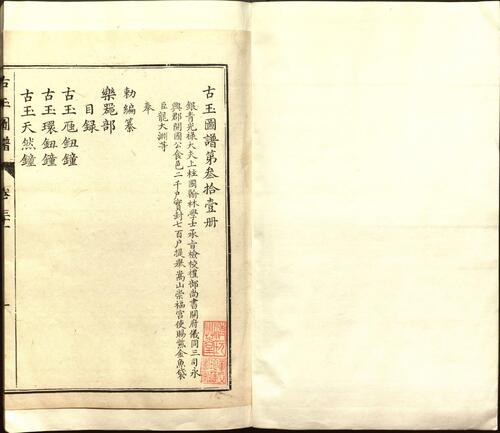 古玉圖譜第叁拾壹册
銀青光祿大夫上柱國翰林學士承旨檢校禮部尚書開府儀同三司永
興郡開國公食邑二千戶實封七百戶提舉嵩山崇福宮使賜紫金魚袋
臣龍大淵等
奉
勅編纂
樂器部
目録
古玉虺鈕鐘
古玉環鈕鐘
古玉天然鐘
古玉圖譜